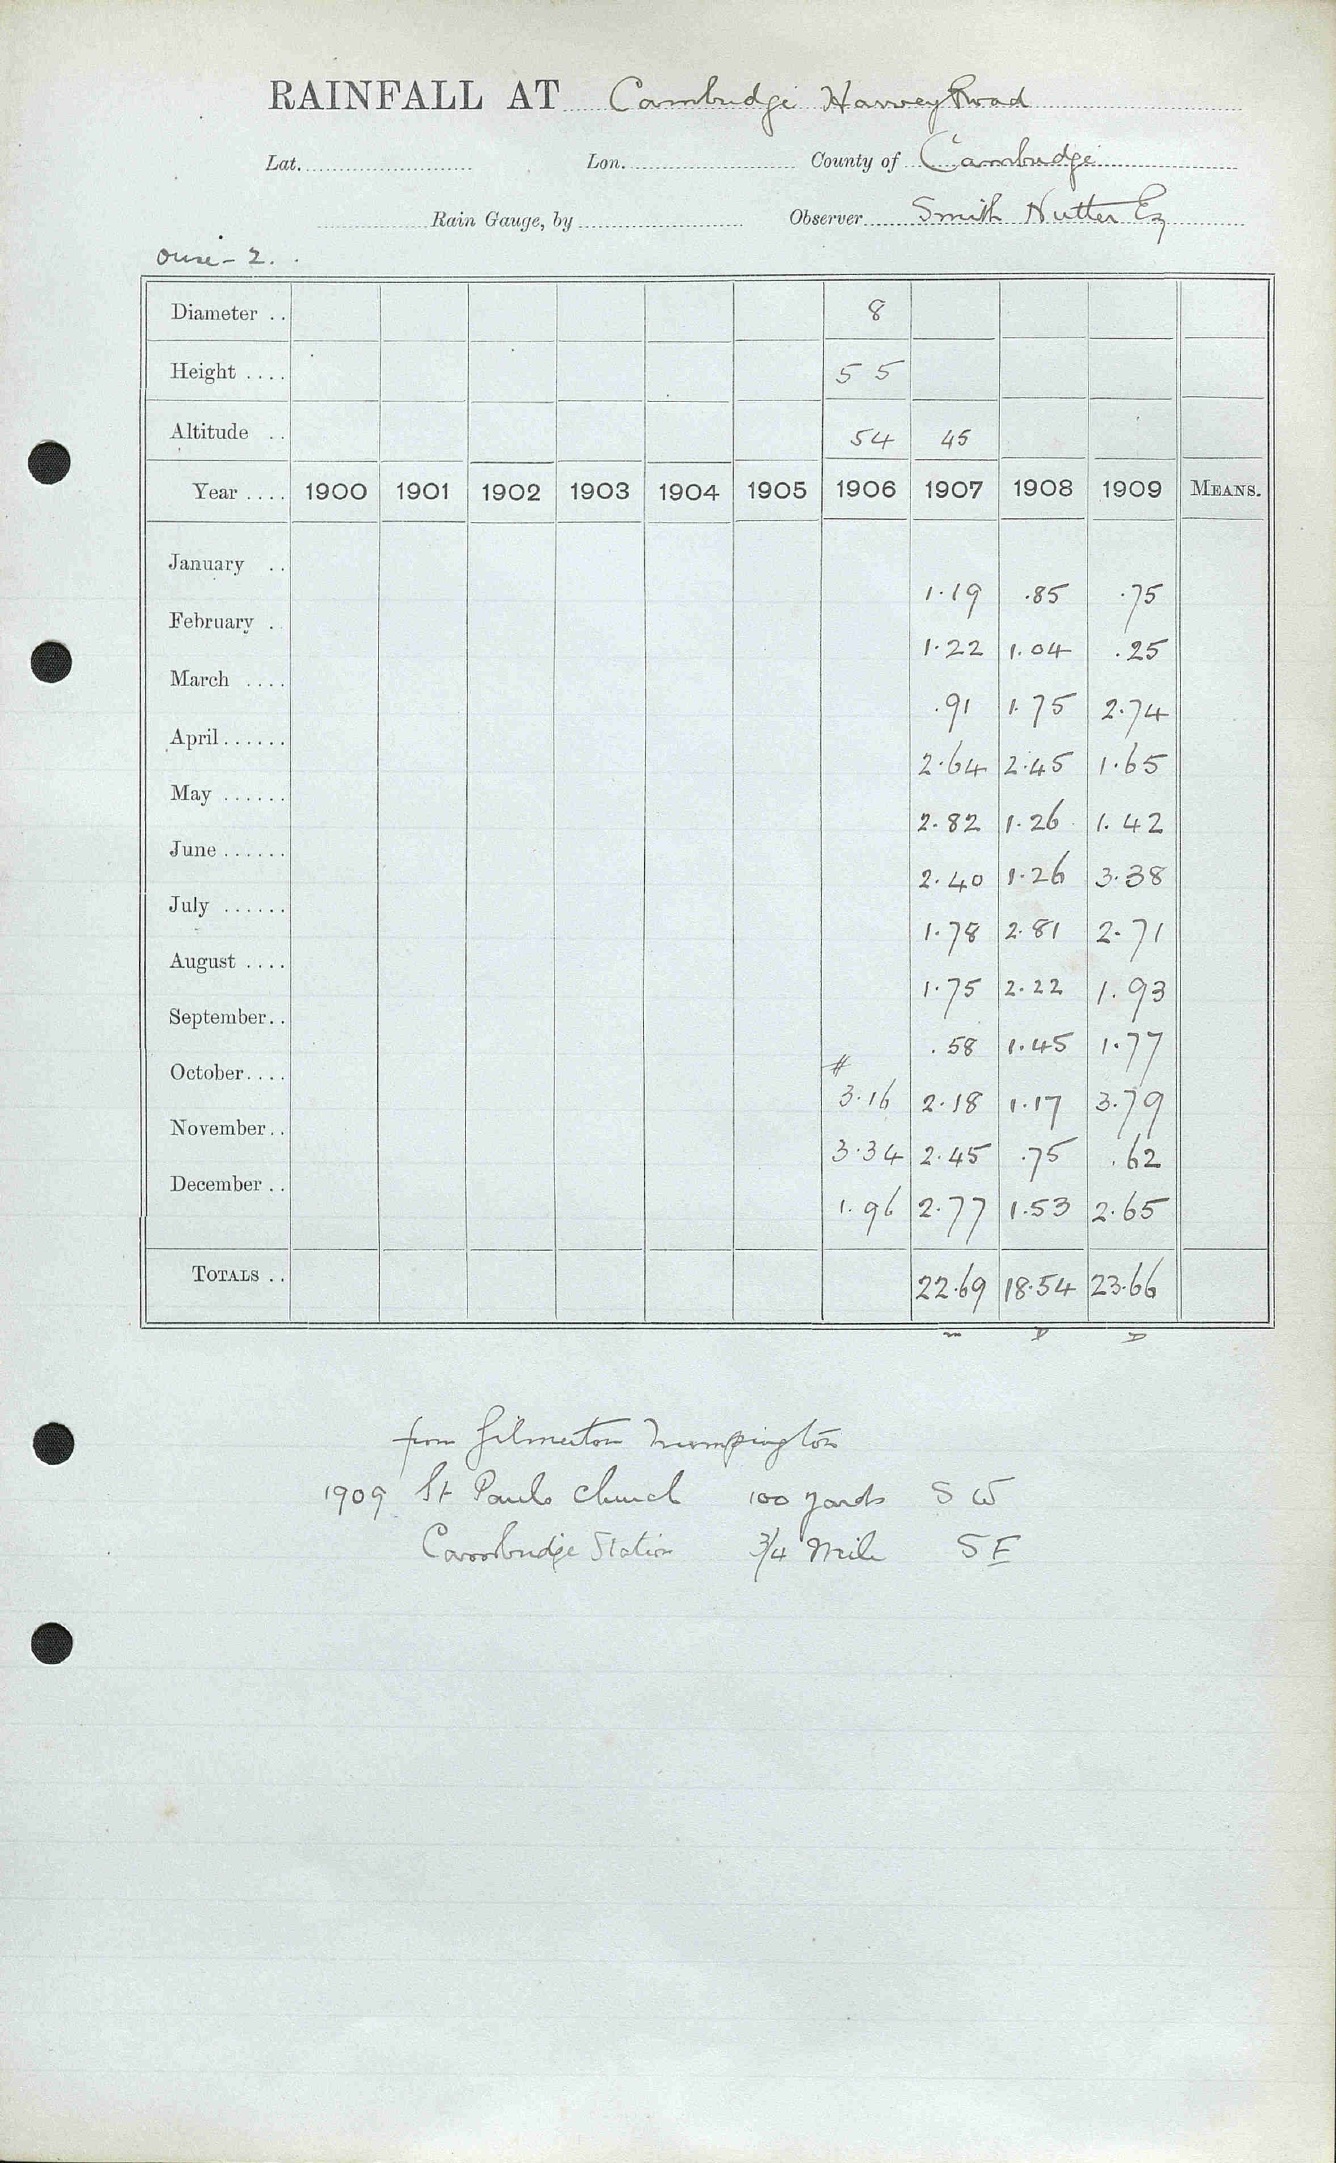 RAINFALL AT Cambridge Harvey Road
Lat. Lon. County of Cambridge
Rain Gauge, by Observer Smith Nutter Eq
Ouse - 2.
Diameter .. 8
Height .... 5 5
Altitude .. 54 45
Year .... 1900 1901 1902 1903 1904 1905 1906 1907 1908 1909 MEANS.
January ..
1.19 .85 .75
February .
1.22 1.04 .25
March ....
.91 1.75 2.74
April......
2.64 2.45 1.65
May ......
2.82 1.26 1.42
June ......
2.40 1.26 3.38
July ......
1.78 2.81 2.71
August ....
1.75 2.22 1.93
September..
.58 1.45 1.77
#
October....
3.16 2.18 1.17 3.79
November..
3.34 2.45 .75 .62
December ..
1.96 2.77 1.53 2.65
TOTALS .. 22.69 18.54 23.66
m D D
from Gilmerton Trumpington
1909 St Pauls Church 100 yards S W
Cambridge Station 3/4 Mile S E